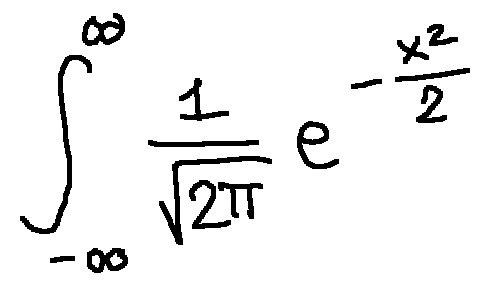 ∫_{-∞}^{∞} \frac{1}{\sqrt{2π}} e^{-\frac{x^2}{2}}